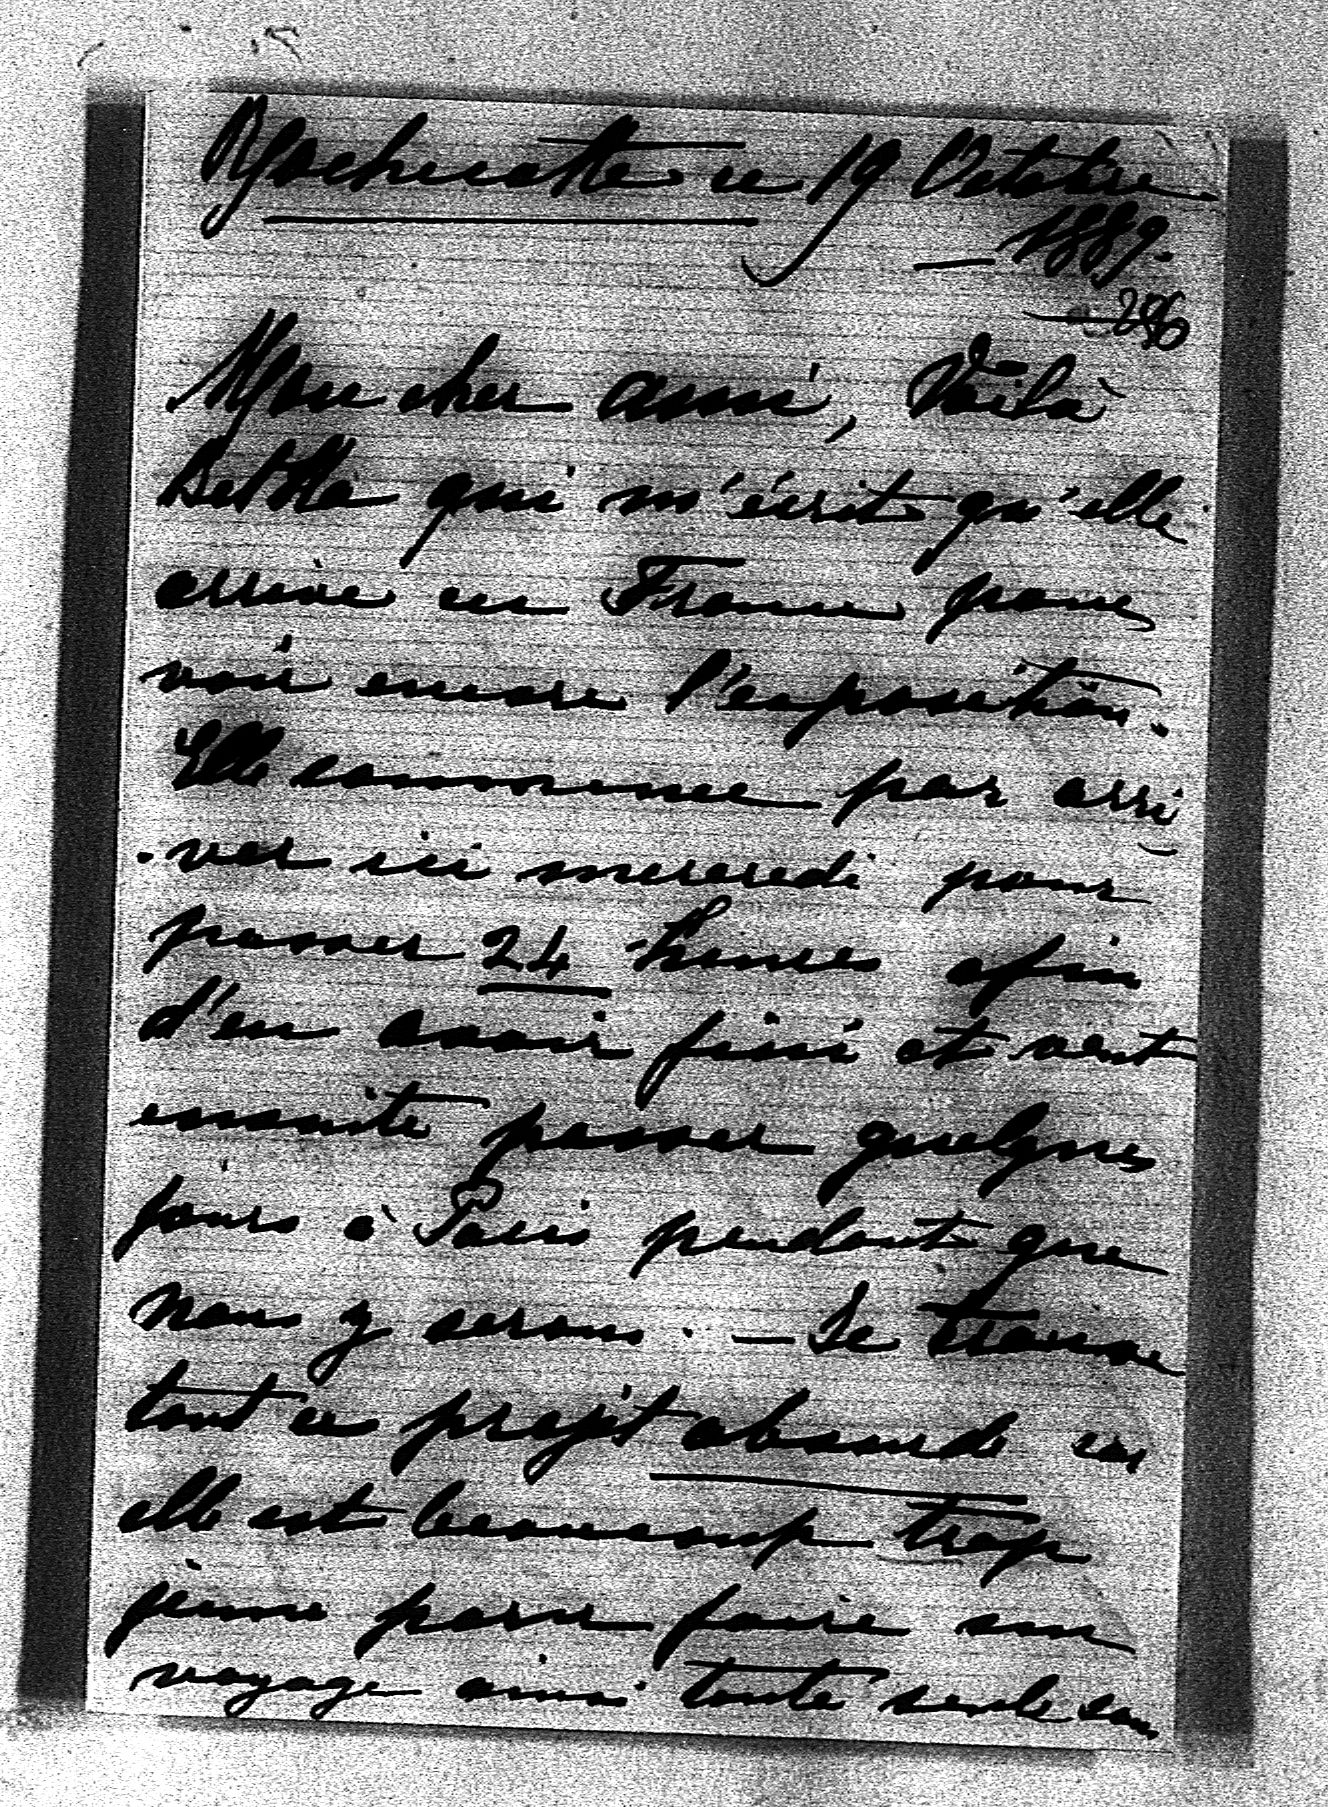 Rochecotte ce 19 Octobre
1889.
Mon cher ami, Voilà
Betka qui m'écrit qu'elle
arrive en France pour
voir encore l'exposition.
Elle commence par arri
ver ici mercredi pour
passer 24 heures afin
d'en avoir fini et veut
ensuite passer quelques
jours à Paris pendant que
nous y serons. — Je trouve
tout ce projet absurde car
elle est beaucoup trop
jeune pour faire un
voyage ainsi toute seule sans